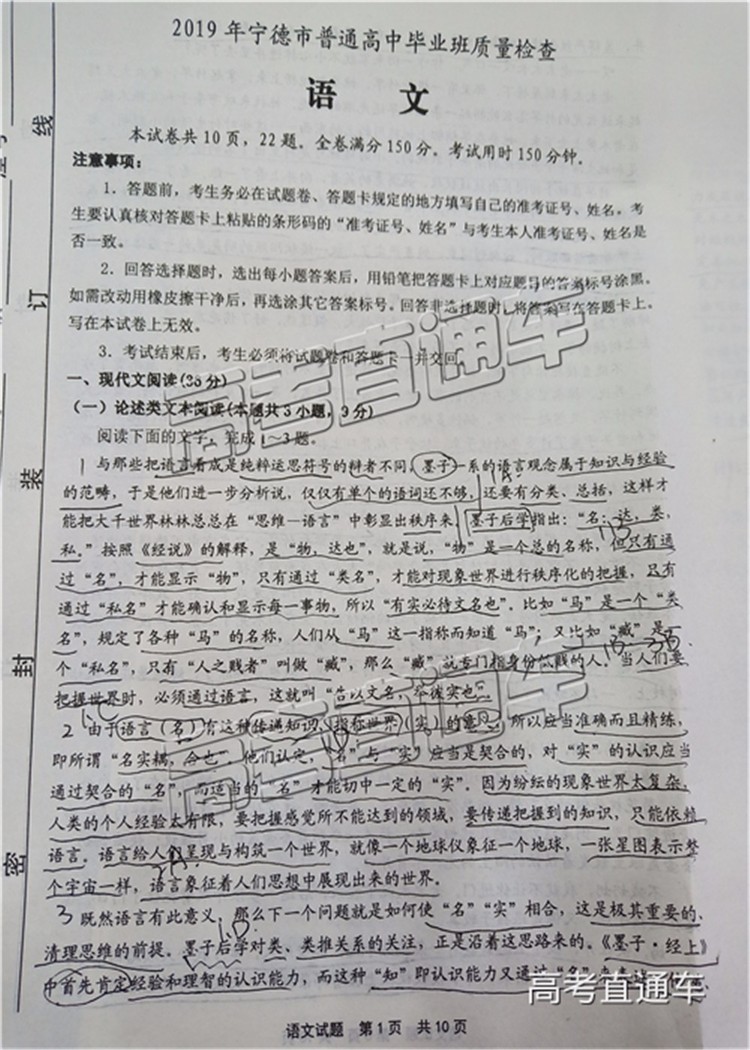 2019 年宁德市普通高中毕业班质量检查
语 文
本试卷共 10 页，22 题。全卷满分 150 分。考试用时 150 分钟。
注意事项：
1．答题前，考生务必在试题卷、答题卡规定的地方填写自己的准考证号、姓名。考
生要认真核对答题卡上粘贴的条形码的“准考证号、姓名”与考生本人准考证号、姓名是
否一致。
2．回答选择题时，选出每小题答案后，用铅笔把答题卡上对应题目的答案标号涂黑。
如需改动用橡皮擦干净后，再选涂其它答案标号。回答非选择题时，将答案写在答题卡上。
写在本试卷上无效。
3．考试结束后，考生必须将试题卷和答题卡一并交回。
一、现代文阅读(36 分)
（一）论述类文本阅读(本题共 3 小题，9 分)
阅读下面的文字，完成 1～3 题。
1 与那些把语言看成是纯粹运思符号的辩者不同，墨子一系的语言观念属于知识与经验
的范畴，于是他们进一步分析说，仅仅有单个的语词还不够，还要有分类、总括，这样才
能把大千世界林林总总在“思维—语言”中彰显出秩序来。墨子后学指出：“名：达，类，
私。”按照《经说》的解释，是“物，达也”，就是说，“物”是一个总的名称，但只有通
过“名”，才能显示“物”，只有通过“类名”，才能对现象世界进行秩序化的把握，只有
通过“私名”才能确认和显示每一事物，所以“有实必待文名也”。比如“马”是一个“类
名”，规定了各种“马”的名称，人们从“马”这一指称而知道“马”；又比如“臧”是一
个“私名”，只有“人之贱者”叫做“臧”，那么“臧”就专门指身份低贱的人。当人们要
把握世界时，必须通过语言，这就叫“告以文名，举彼实也”。
2 由于语言（名）有这种传递知识、指称世界（实）的意义，所以应当准确而且精练，
即所谓“名实耦，合也”。他们认定，“名”与“实”应当是契合的，对“实”的认识应当
通过契合的“名”，而适当的“名”才能切中一定的“实”。因为纷纭的现象世界太复杂，
人类的个人经验太有限，要把握感觉所不能达到的领域，要传递把握到的知识，只能依赖
语言。语言给人们呈现与构筑一个世界，就像一个地球仪象征一个地球，一张星图表示整
个宇宙一样，语言象征着人们思想中展现出来的世界。
3 既然语言有此意义，那么下一个问题就是如何使“名”“实”相合，这是极其重要的、
清理思维的前提。墨子后学对类、类推关系的关注，正是沿着这思路来的。《墨子·经上》
中首先肯定经验和理智的认识能力，而这种“知”即认识能力又通过“名”
语文试题 第 1 页 共 10 页
线
订
装
封
密
高考直通车
高考直通车
高考直通车